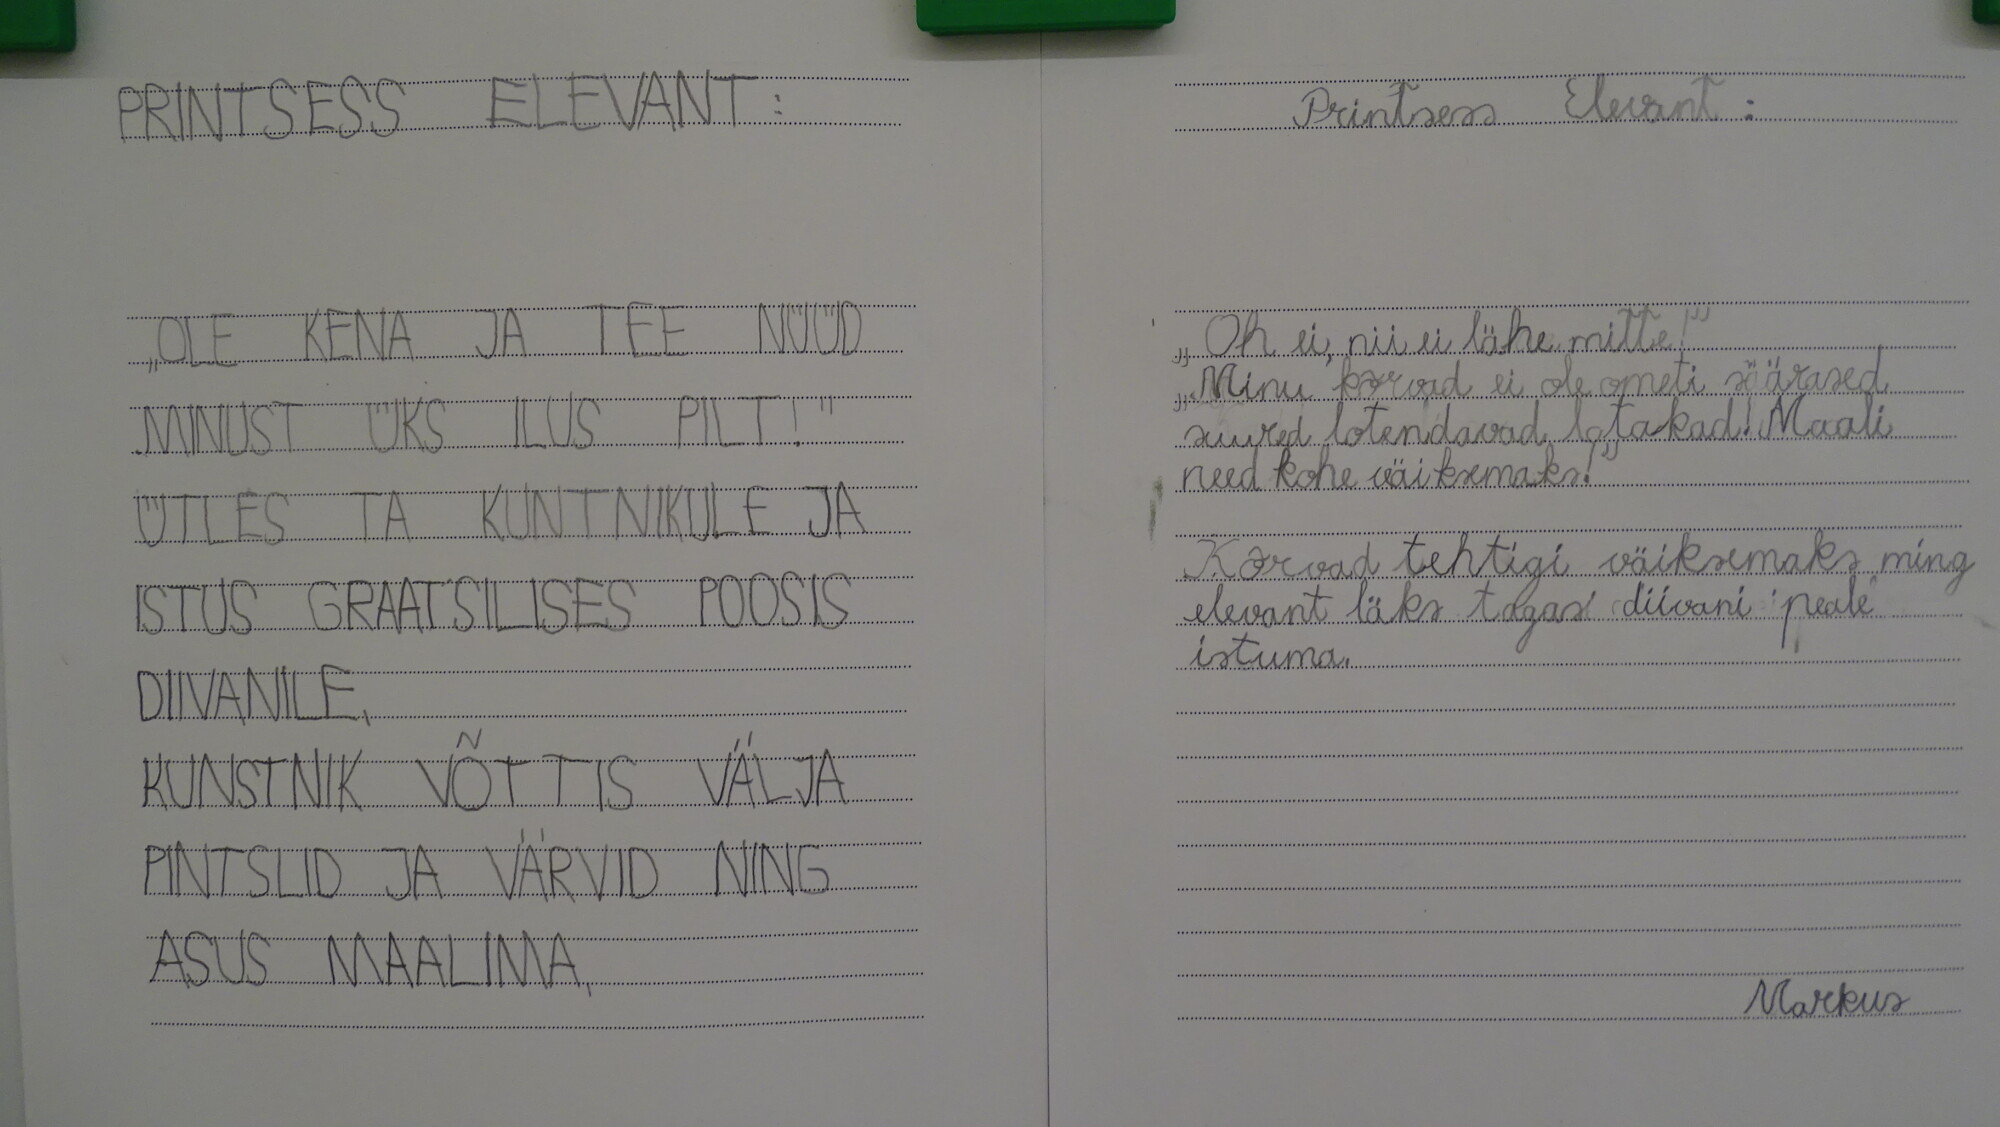 PRINTSESS ELEVANT:
„OLE KENA JA TEE NÜÜD
MINUST ÜKS ILUS PILT!"
ÜTLES TA KUNTNIKULE JA
ISTUS GRAATSILISES POOSIS
DIIVANILE,
KUNSTNIK VÕTTIS VÄLJA
PINTSLID JA VÄRVID NING
ASUS MAALIMA,
Printsess Elevant:
„Oh ei, nii ei lähe mitte!"
„Minu kõrvad ei ole ometi säärased
suured lotendavad lotakad! Maali
need kohe väiksemaks!"
Kõrvad tehtigi väiksemaks ming
elevant läks tagasi diivani peale
istuma.
Markus